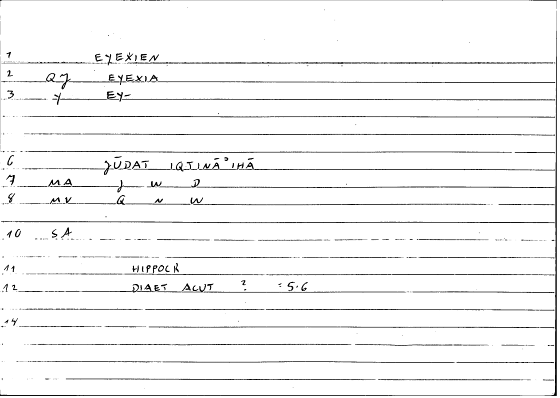 1 EYEXIEN
2 QJ EYEXIA
3 Y EY-
6 JŪDAT IQTINĀʾIHĀ
7 MA J W D
8 MV Q N W
10 SA
11 HIPPOCR
12 DIAET ACUT ? :5.6
14